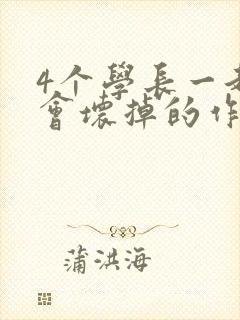 4个學長一
會壞掉的作
蒲洪海